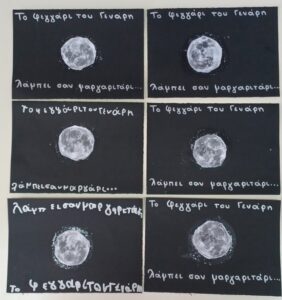 Το φεγγάρι του Γενάρη
λάμπει σαν μαργαριτάρι...
Το φεγγάρι του Γενάρη
λάμπει σαν μαργαριτάρι...
Το φεγγάρι του Γενάρη
λάμπει σαν μαργάρι...
Το φεγγάρι του Γενάρη
λάμπει σαν μαργαριτάρι...
λάμπ ει σαν μαρ γαριτάρι
Το φεγγάρι του Γενάρη
Το φεγγάρι του Γενάρη
λάμπει σαν μαργαριτάρι...